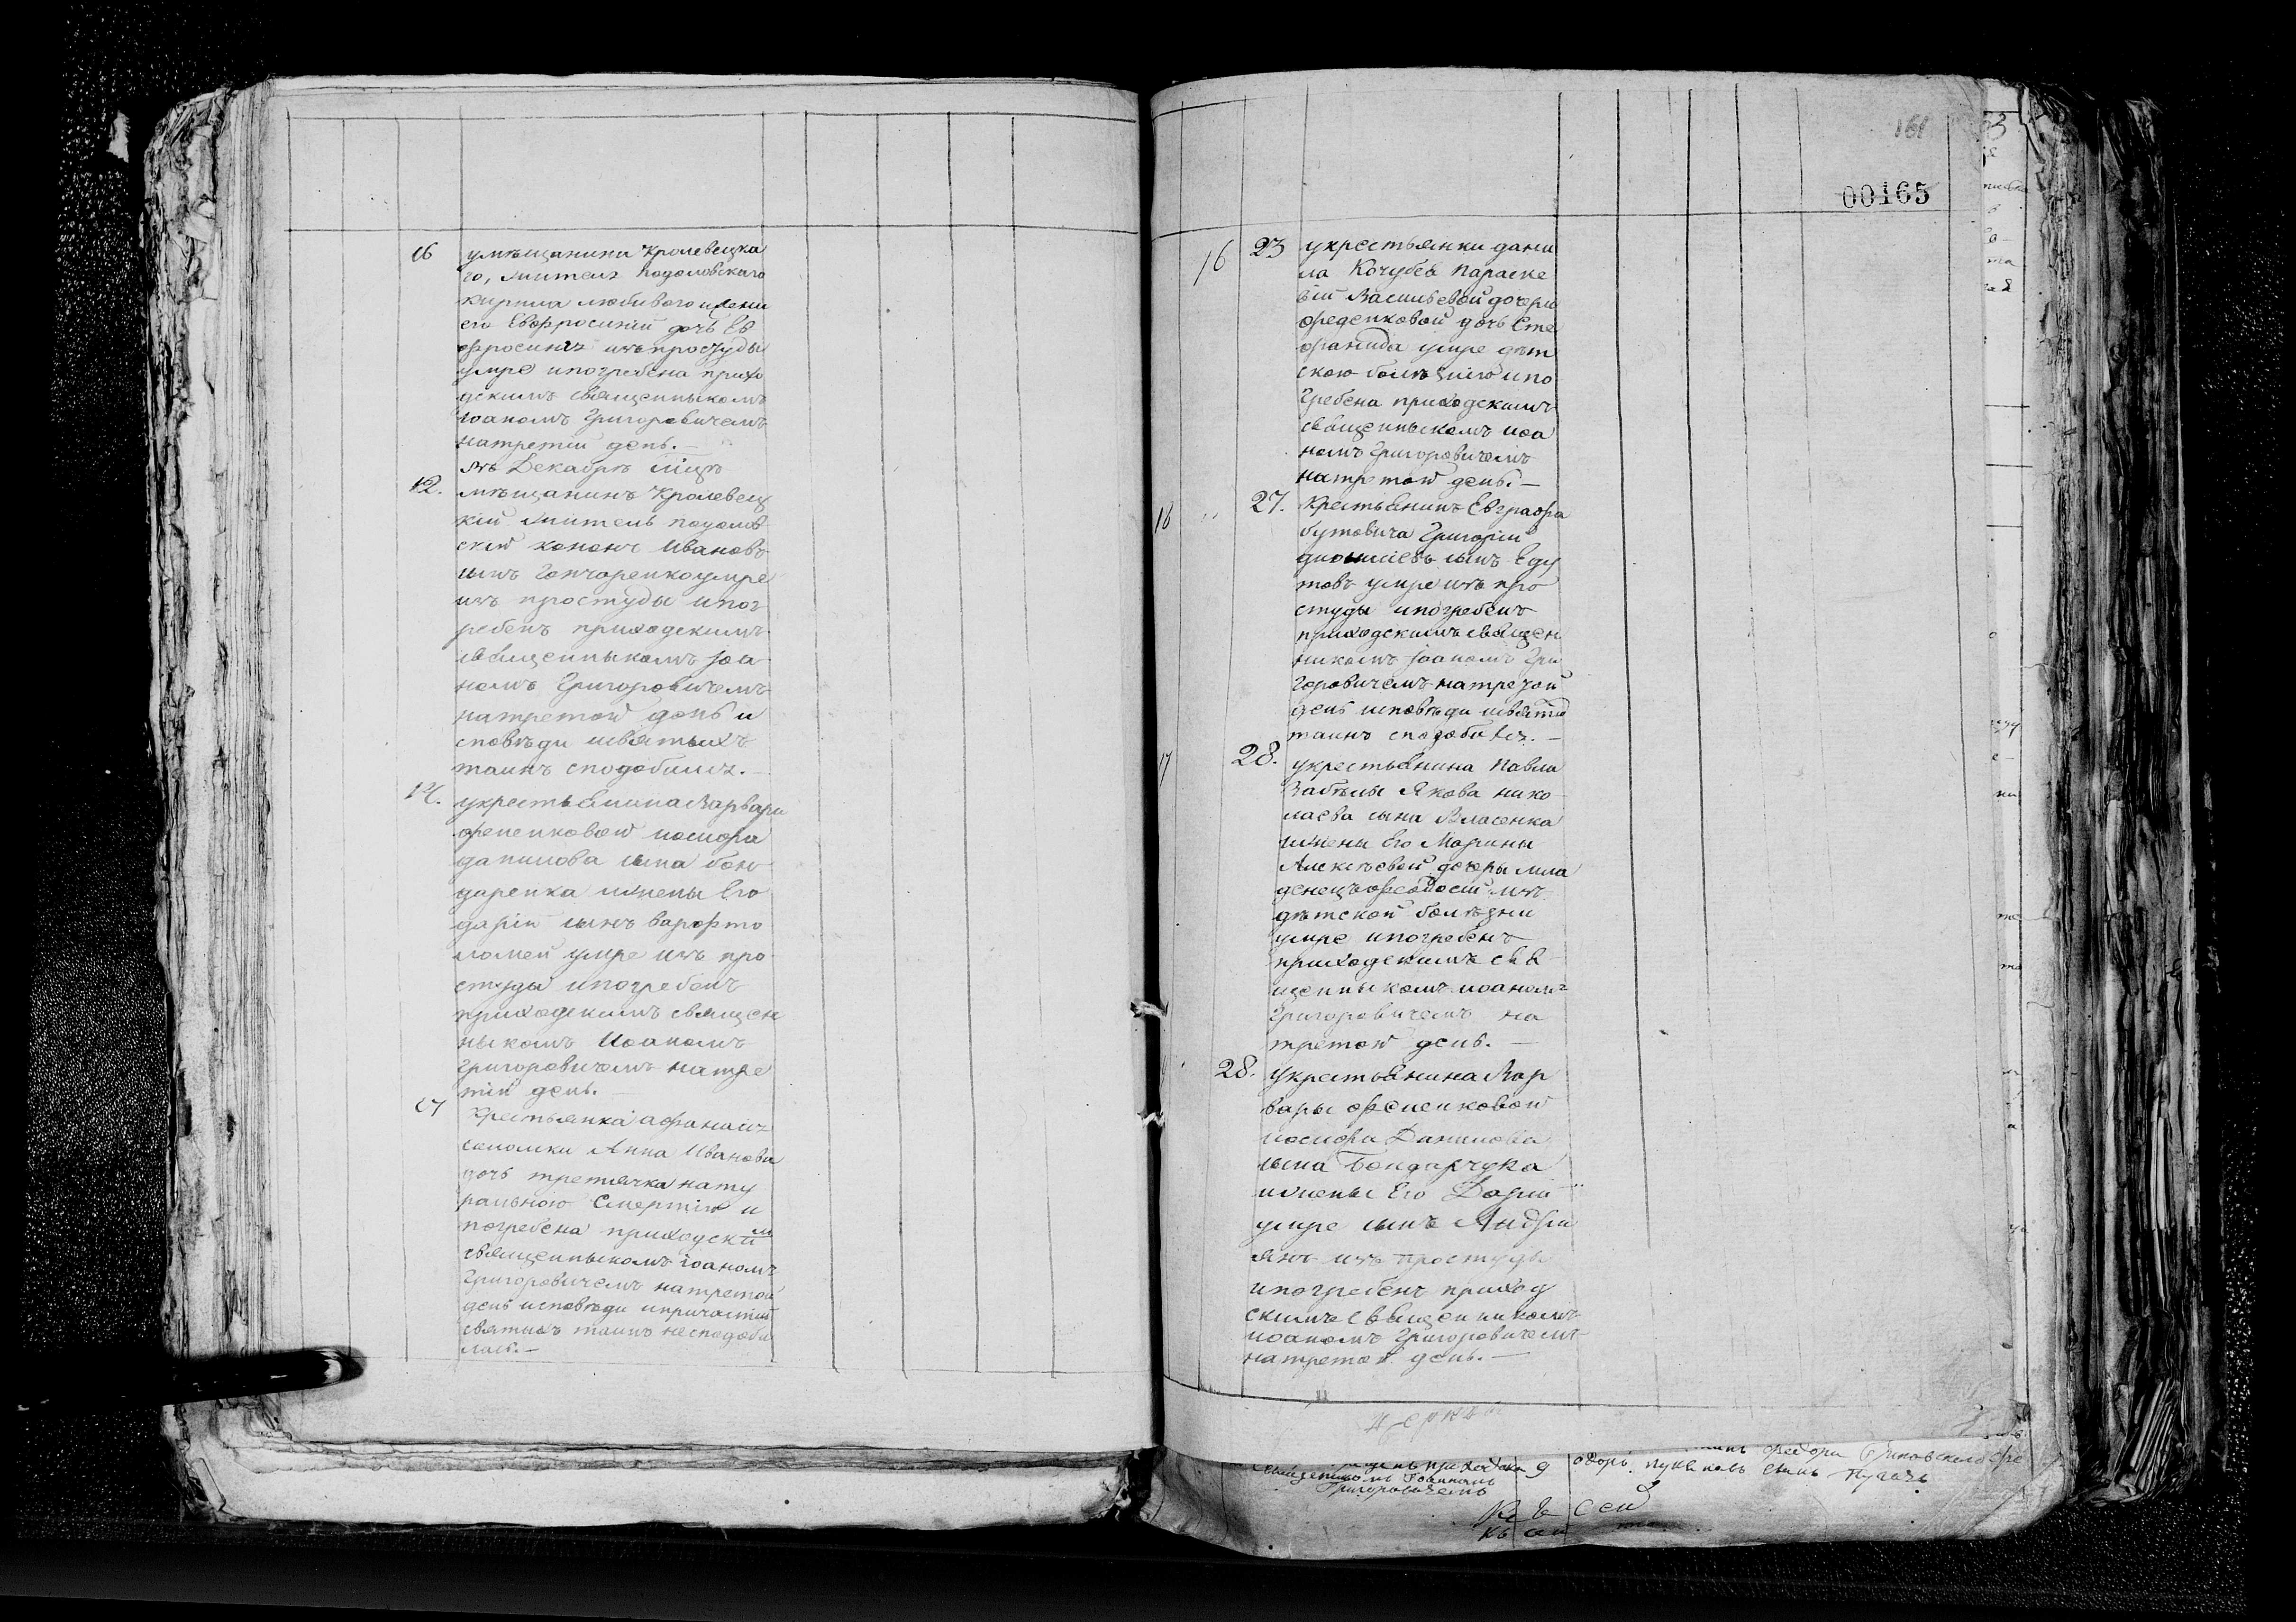 16 умѣщанини Кролевецка
го, жителя Подоловскаго
Кирила любивого ижени
его Евфросиніи дочь Ев
фросинія изъ простуды
умре ипогребена прихо
дскимъ священныкомъ
Іоаномъ Григоровичемъ
натретій день.—
въ Декабрѣ мцѣ
12. мѣщанинъ Кролевец
кій житель подолов
скій кононъ Ивановъ
сынъ Гончаренко умре
изъ простуды ипог
ребенъ приходскимъ
священныкомъ Іоа
номъ Григоровичемъ
натретой день и
сповѣди исвятыхъ
таинъ сподобился.—
14. укрестьянина Варвари
фененковой иосифа
данилова сына бон
даренка ижены Его
даріи сынъ варфто
ломей умре изъ про
студы ипогребенъ
приходскимъ священ
ныкомъ Иоаномъ
Григоровичемъ натре
тій день.—
17 Крестьянка афанасія
соломки Анна Иванова
дочь третячка нату
ральною Смертію и
погребена приходским
священныкомъ іоаномъ
Григоровичемъ натретой
день исповѣди ипричастій
святихъ таинъ несподоби
лась.—
161
00165
16 23 укрестьянки дани
ла Кочубея Параске
віи Васильевой дочери
феденковой дочь Сте
фанида умре дѣт
скою болѣзнію ипо
гребена приходскимъ
священныкомъ иоа
номъ Григоровичемъ
натретой день.—
16 27. Крестьянинъ Евграфа
бутовича Григорій
дионисіевъ сынъ Еду
товъ умре изъ про
студы ипогребенъ
приходскимъ священ
никомъ іоаномъ Гри
горовичемъ натретой
день исповѣди исвятих
таинъ сподобився.—
17 28. укрестьянина Павла
Забѣлы Якова нико
лаева сына Власенка
ижени Его Марины
Алексѣевой дочеры мла
денецъ феодосій изъ
дѣтской болѣзни
умре ипогребенъ
приходскимъ свя
щенныкомъ иоаномъ
Григоровичемъ на
третой день.—
28. Укрестьянина Вар
вары фененковой
иосифа Данилова
сына Бондарчука
ижены Его Даріи
умре сынъ Андри
янъ изъ простуды
ипогребенъ приход
скимъ священникомъ
иоаномъ Григоровичемъ
натретой день.—
Іоанномъ
Григоровичемъ